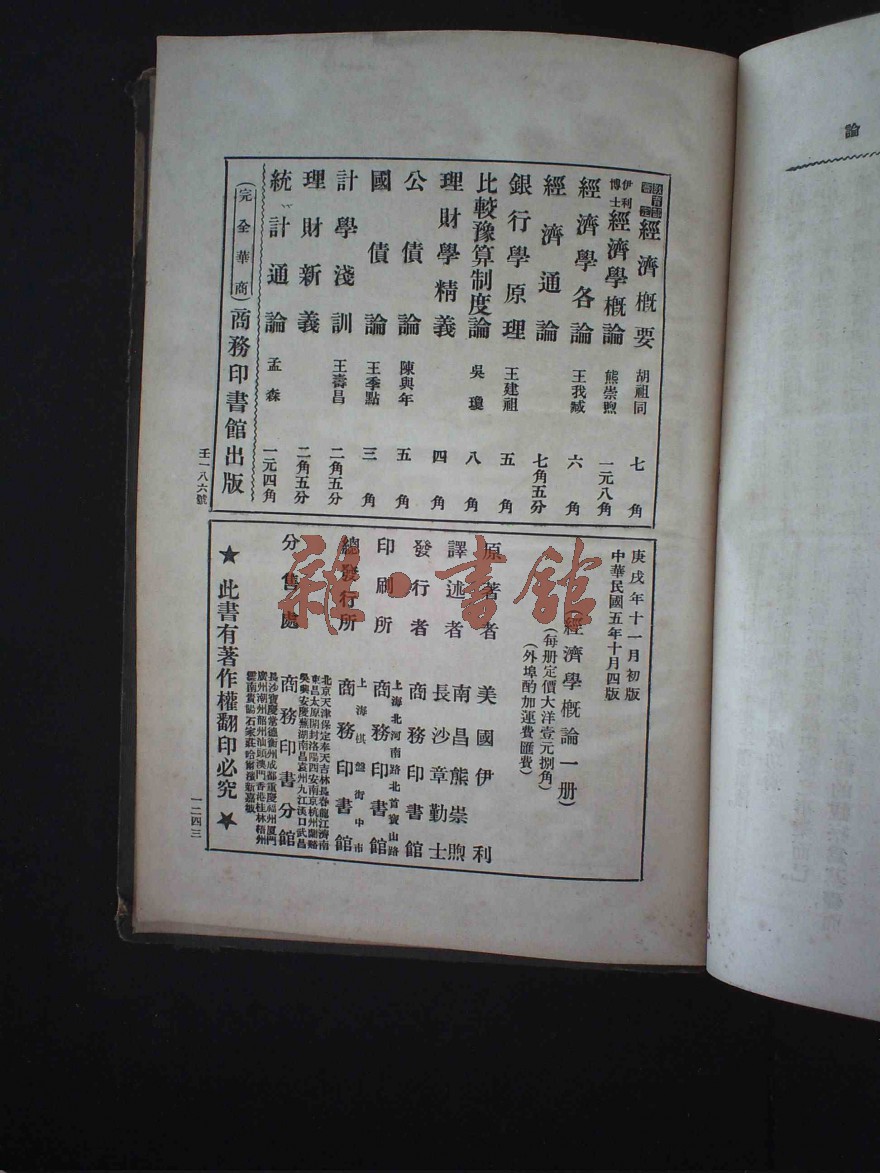 經濟概要 胡祖同 七角
伊利博士 經濟學概論 熊崇煦 一元八角
經濟學各論 王我臧 六角
經濟通論 七角五分
銀行學原理 王建祖 五角
比較豫算制度論 吳瓊 八角
理財學精義 四角
公債論 陳與年 五角
國債論 王季點 三角
計學淺訓 王壽昌 二角五分
理財新義 二角五分
統計通論 孟森 一元四角
(完全華商)商務印書館出版
壬一八六號
庚戌年十一月初版
中華民國五年十月四版
(經濟學概論一册)
(每册定價大洋壹元捌角)
(外埠酌加運費匯費)
原著者 美國伊利
譯述者 南昌熊崇煦
長沙章勤士
發行者 商務印書館
上海北河南路北首寶山路
印刷所 商務印書館
上海棋盤街中市
總發行所 商務印書館
北京天津保定奉天吉林長春龍江濟南
東昌太原開封洛陽西安南京杭州蘭谿
吳興安慶蕪湖南昌袁州九江漢口武昌
分售處 商務印書分館
長沙寶慶常德衡州成都重慶福州廈門
廣州潮州韶州汕頭澳門香港桂林梧州
雲南貴陽石家莊哈爾濱新嘉坡
★此書有著作權翻印必究★
一二四三
論
雜·書館